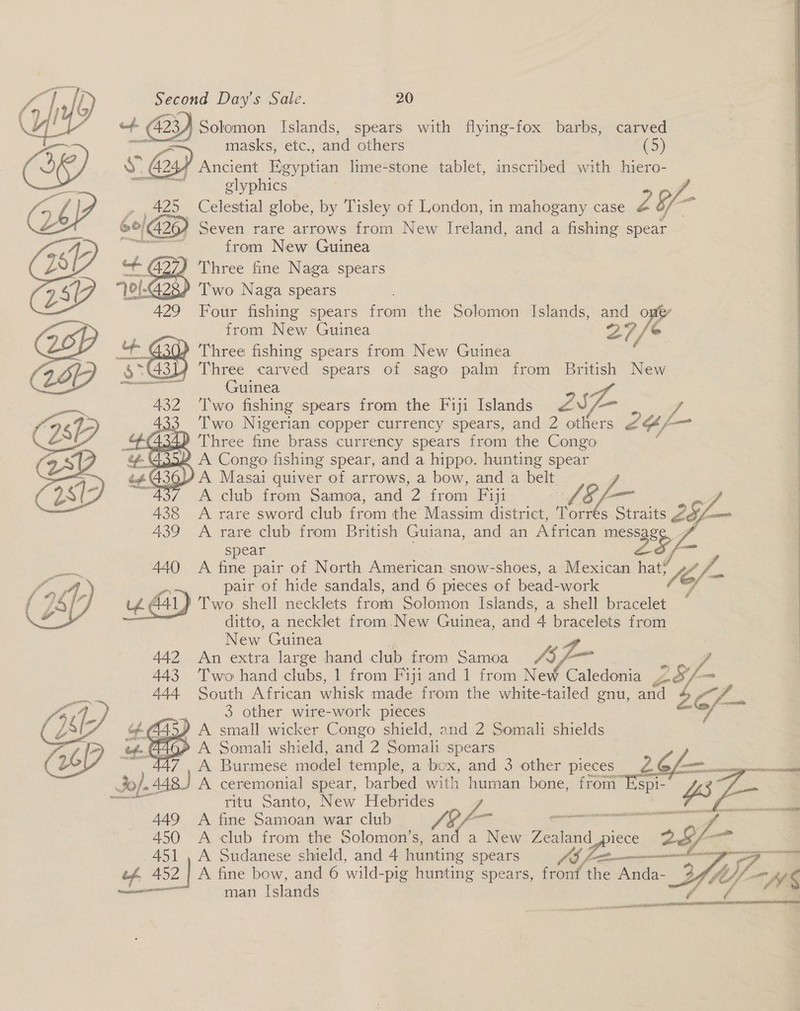 Second Day's Sale. 20
423 Solomon Islands, spears with flying-fox barbs, carved
masks, etc., and others (5)
424 Ancient Egyptian lime-stone tablet, inscribed with hiero-
glyphics
425 Celestial globe, by Tisley of London, in mahogany case
60/ 426 Seven rare arrows from New Ireland, and a fishing spear
from New Guinea
427 Three fine Naga spears
428 Two Naga spears
429 Four fishing spears from the Solomon Islands, and one
from New Guinea 27/6
430 Three fishing spears from New Guinea
431 Three carved spears of sago palm from British New
Guinea
432 Two fishing spears from the Fiji Islands 25/-
433 Two Nigerian copper currency spears, and 2 others 24/-
434 Three fine brass currency spears from the Congo
435 A Congo fishing spear, and a hippo. hunting spear
436 A Masai quiver of arrows, a bow, and a belt
437 A club from Samoa, and 2 from Fiji 18/-
438 A rare sword club from the Massim district, Torrés Straits 25/-
439 A rare club from British Guiana, and an African message
spear 25/-
440 A fine pair of North American snow-shoes, a Mexican hat,
pair of hide sandals, and 6 pieces of bead-work
441 Two shell necklets from Solomon Islands, a shell bracelet
ditto, a necklet from New Guinea, and 4 bracelets from
New Guinea
442 An extra large hand club from Samoa
443 Two hand clubs, 1 from Fiji and 1 from New Caledonia 28/-
444 South African whisk made from the white-tailed gnu, and
3 other wire-work pieces
445 A small wicker Congo shield, and 2 Somali shields
446 A Somali shield, and 2 Somali spears
447 A Burmese model temple, a box, and 3 other pieces 26/-
30/- 448 A ceremonial spear, barbed with human bone, from Espi-
ritu Santo, New Hebrides
449 A fine Samoan war club 18/-
450 A club from the Solomon's, and a New Zealand piece 28/-
451 A Sudanese shield, and 4 hunting spears
452 A fine bow, and 6 wild-pig hunting spears, from the Anda-
man Islands